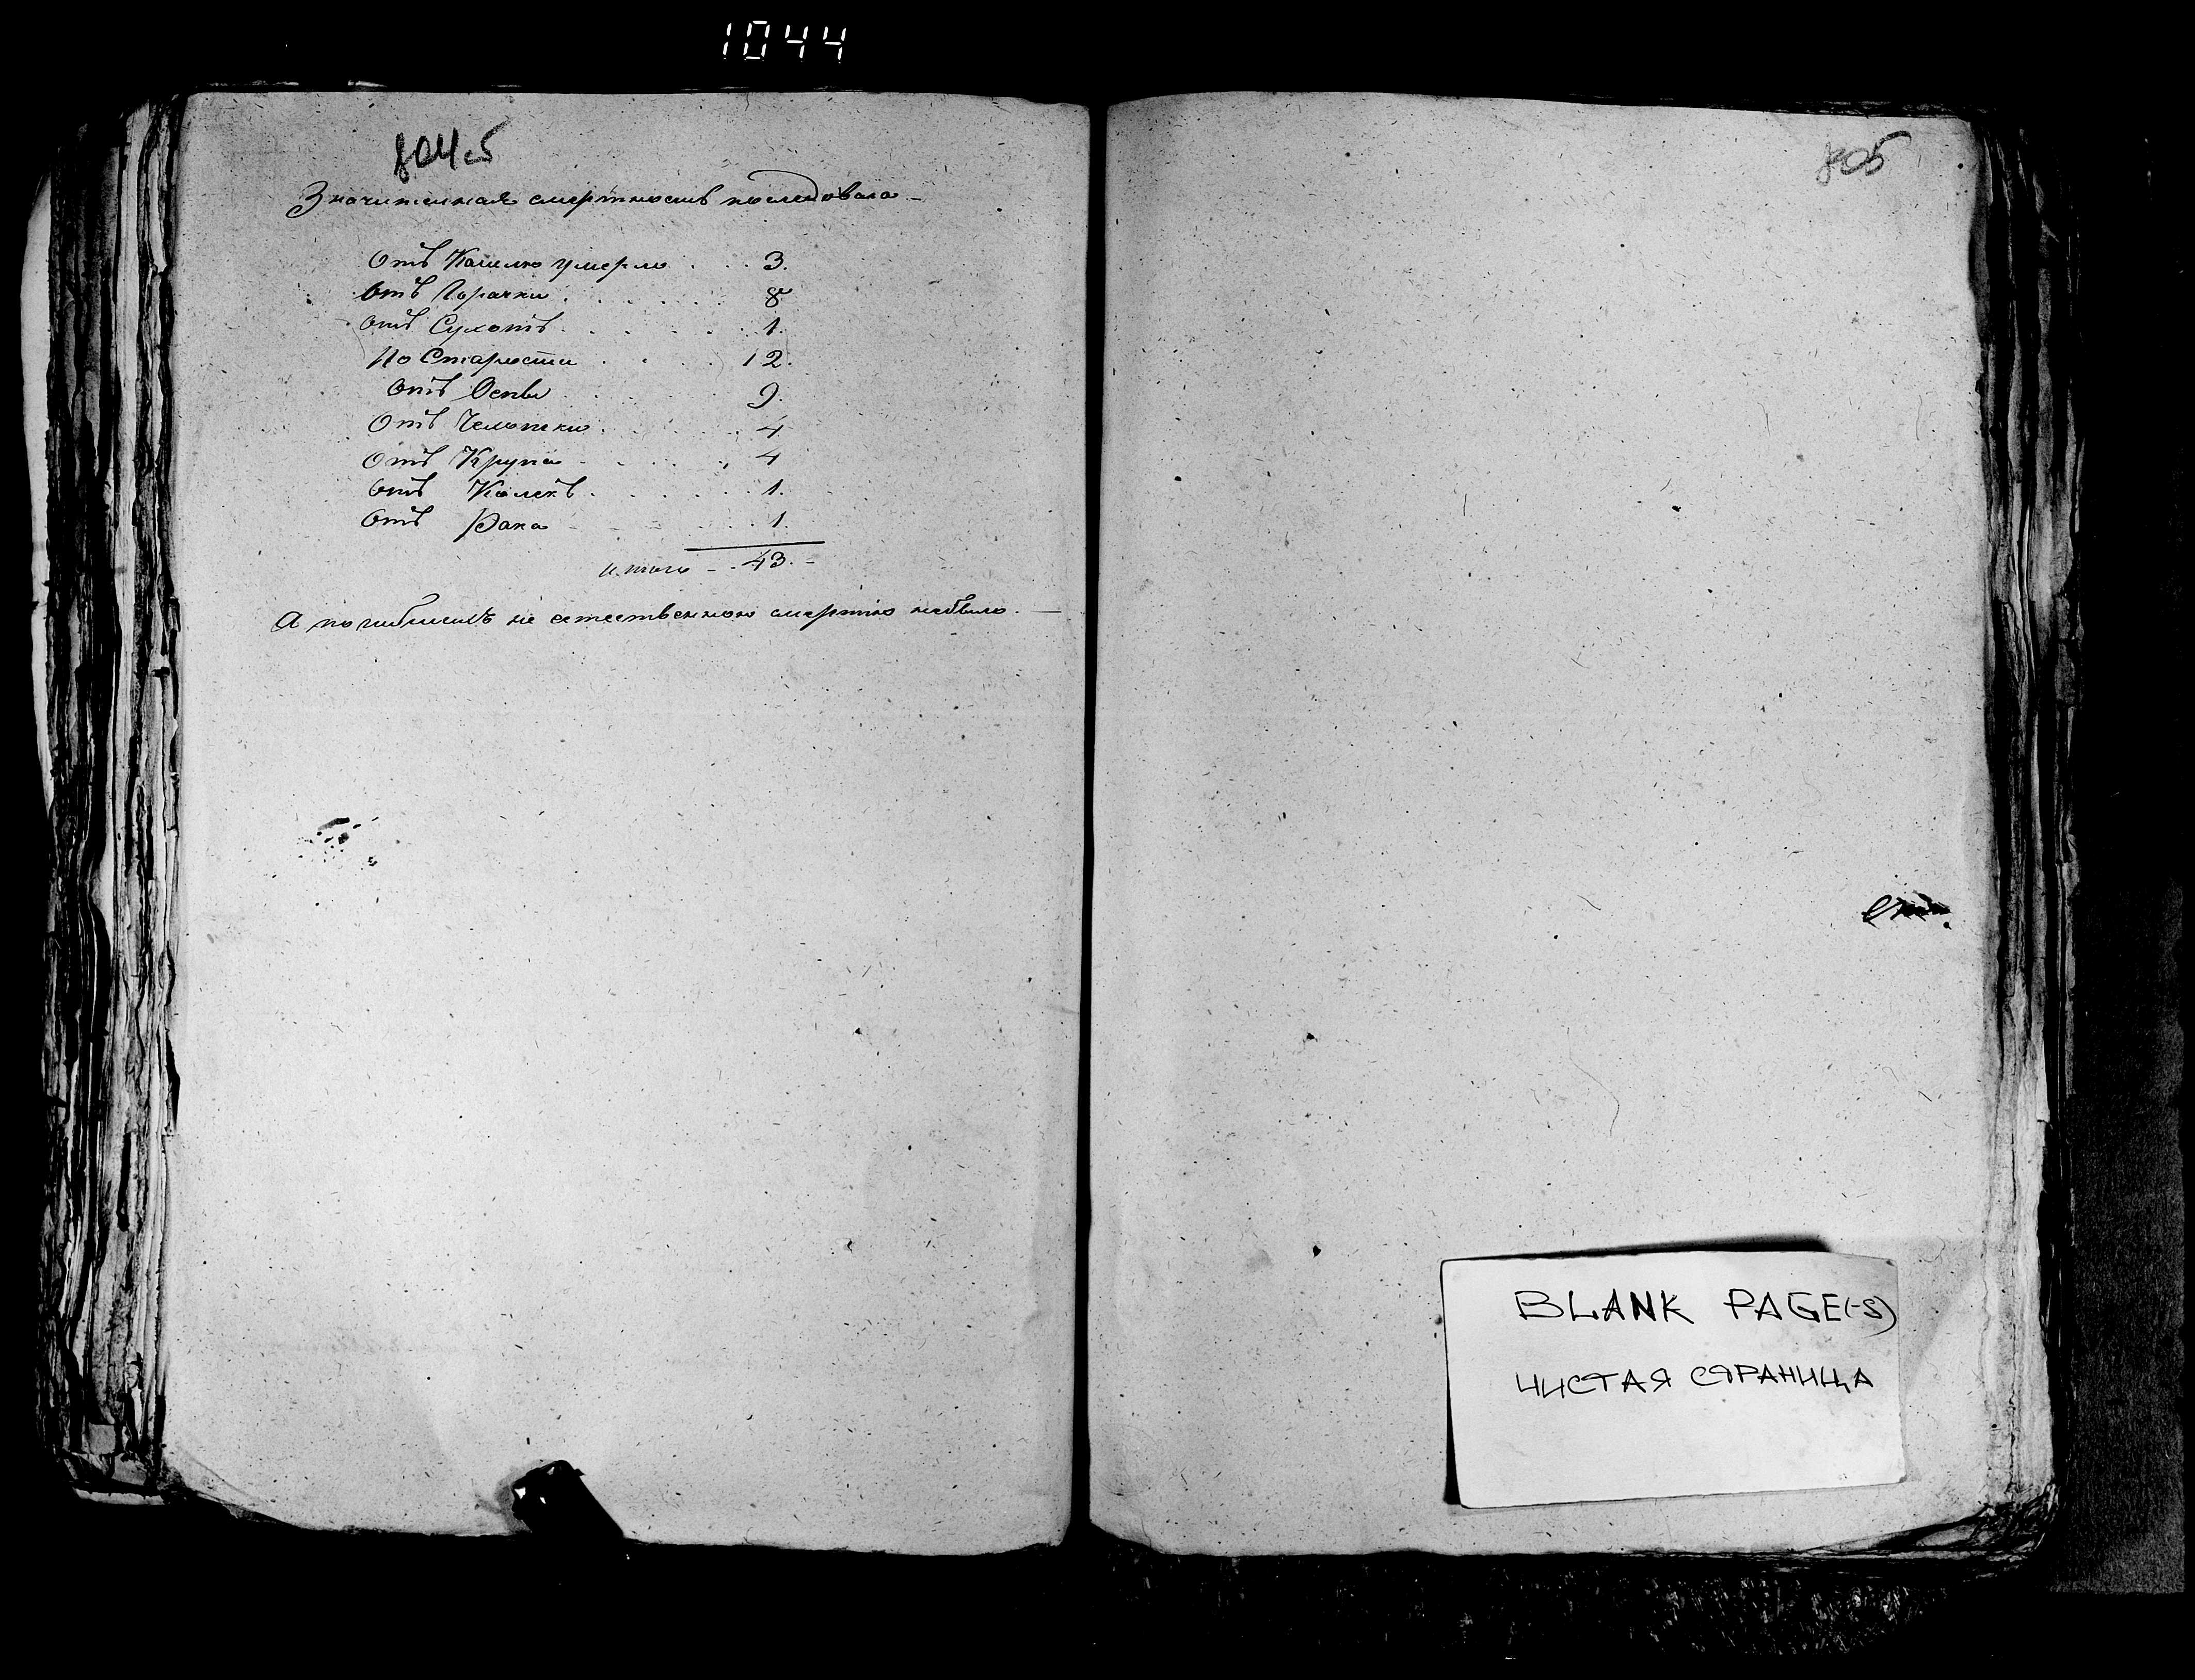 1044
804об
Значительная смертность последовала –
Отъ Кашлю умерло . . . 3.
Отъ Горячки . . . . . . 8
Отъ Сухотъ . . . . . . 1.
По Старости . . . . 12.
Отъ Оспы . . . . . . 9.
Отъ Чесотки . . . . . 4
Отъ Крупа . . . . . . 4
Отъ Колекъ . . . . . . 1.
Отъ Рака . . . . . . 1.
Итого - . 43. -
А погибшихъ не естественною смертію небыло. —
805
BLANK PAGE(-S)
ЧИСТАЯ СТРАНИЦА